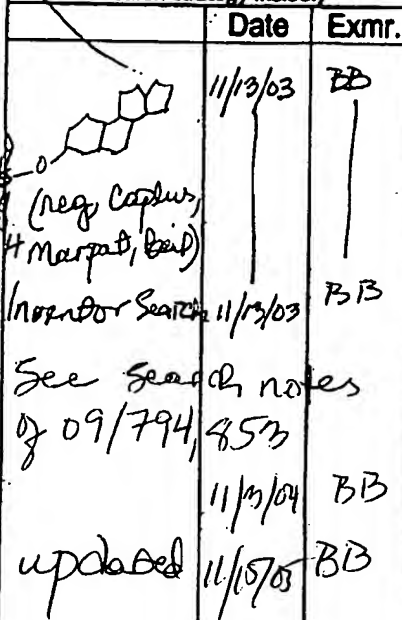 Date Exmr.
11/13/03 BB
O
(reg, Caplus,
Marpat, beil)
Inventor Search 11/13/03 BB
See search notes
of 09/794,853
11/3/04 BB
updated 11/15/05 BB